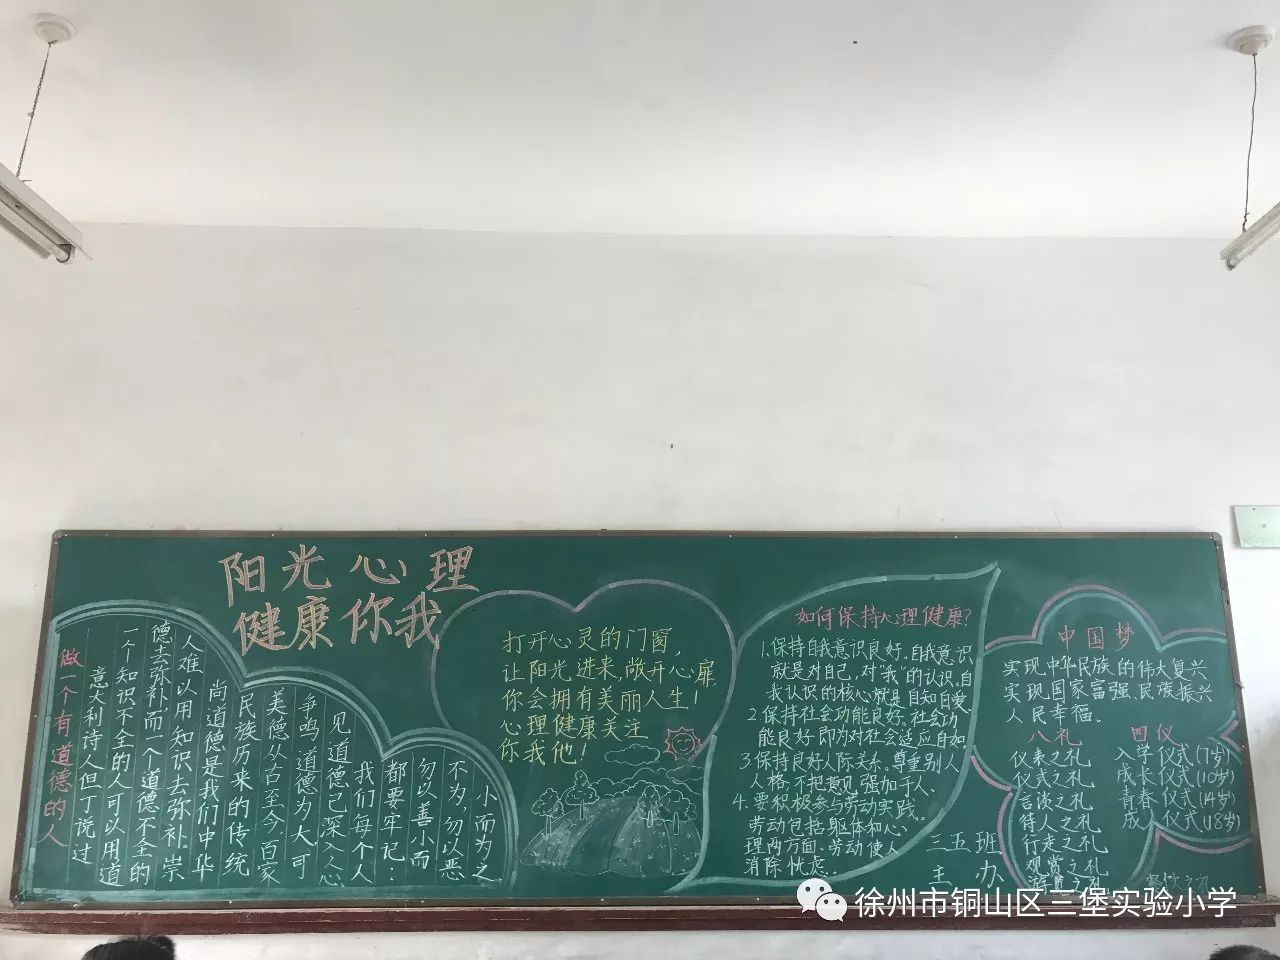 阳光心理
健康你我
做一个有道德的人
意大利诗人但丁说过
一个知识不全的人可以用道
德去弥补而一个道德不全的
人难以用知识去弥补。崇
尚道德是我们中华
民族历来的传统
美德从古至今,百家
争鸣道德为大可
见道德已深入人心
我们每个人
都要牢记:
勿以善小而
不为,勿以恶
小而为之
打开心灵的门窗,
让阳光进来,敞开心扉
你会拥有美丽人生!
心理健康关注
你我他!
如何保持心理健康?
1.保持自我意识良好.自我意识
就是对自己,对“我”的认识.自
我认识的核心就是自知自爱
2保持社会功能良好.社会功
能良好即为对社会适应自如
3保持良好人际关系.尊重别人
人格,不把意见强加于人.
4.要积极参与劳动实践.
劳动包括躯体和心
理两方面.劳动使人
消除忧虑..
三五班
主办
中国梦
实现中华民族的伟大复兴
实现国家富强.民族振兴
人民幸福.
八礼
仪表之礼
仪式之礼
言谈之礼
待人之礼
行走之礼
观赏之礼
游览之礼
餐饮之礼
四仪
入学仪式(7岁)
成长仪式(10岁)
青春仪式(14岁)
成人仪式(18岁)
徐州市铜山区三堡实验小学